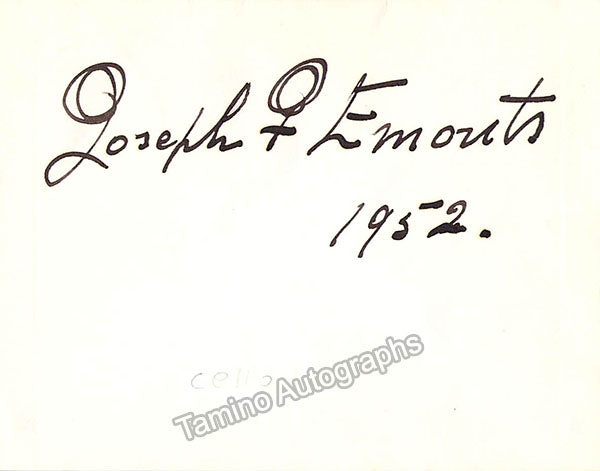 Joseph F Emonts
1952.
cello
Tamino Autographs